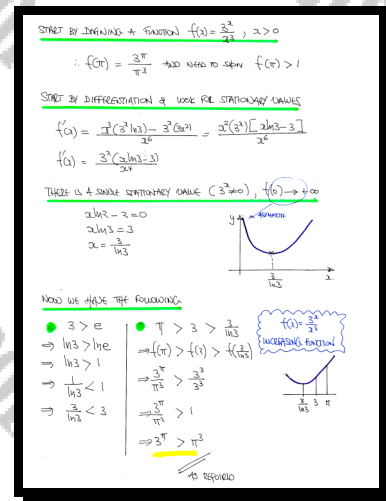 START BY DEFINING A FUNCTION f(x) = 3^x/x^3 , x>0
∴ f(π) = 3^π/π^3 AND NEED TO SHOW f(π) > 1
START BY DIFFERENTIATION & LOOK FOR STATIONARY VALUES
f'(x) = x^3(3^x ln3) - 3^x(3x^2)/x^6 = x^2(3^x)[x ln3 - 3]/x^6
f'(x) = 3^x(x ln3 - 3)/x^4
THERE IS A SINGLE STATIONARY VALUE (3^x ≠ 0), f(0) → +∞
x ln3 - 3 = 0
x ln3 = 3
x = 3/ln3
y
ASYMPTOTE
x
3/ln3
NOW WE HAVE THE FOLLOWING
3 > e
⇒ ln3 > lne
⇒ ln3 > 1
⇒ 1/ln3 < 1
⇒ 3/ln3 < 3
π > 3 > 3/ln3
⇒ f(π) > f(3) > f(3/ln3)
⇒ 3^π/π^3 > 3^3/3^3
⇒ 3^π/π^3 > 1
⇒ 3^π > π^3
AS REQUIRED
f(x) = 3^x/x^3
INCREASING FUNCTION
3/ln3 3 π